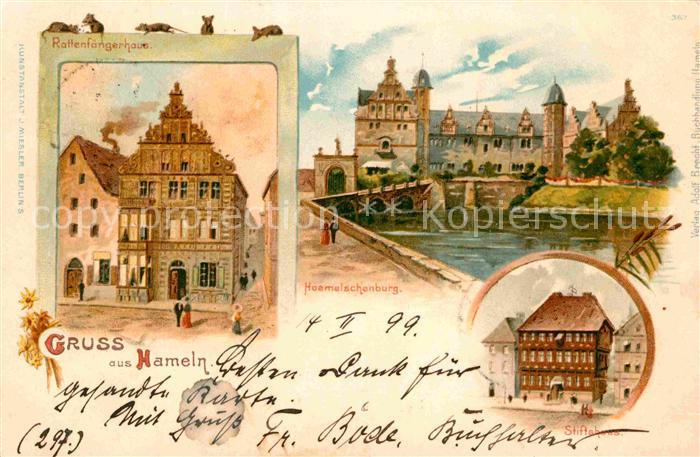 Rattenfängerhaus.
367
KUNSTANSTALT J. MIESLER, BERLIN S.
Verlag Adolf Brecht, Buchhandlung Hameln.
copyright protection Kopierschutz
Haemelschenburg.
4. II 99.
GRUSS
aus HAMELN.
Besten Dank für
gesandte Karte.
Mit Gruß Fr. Böde, Buchhalter.
(297.)
Stiftshaus.